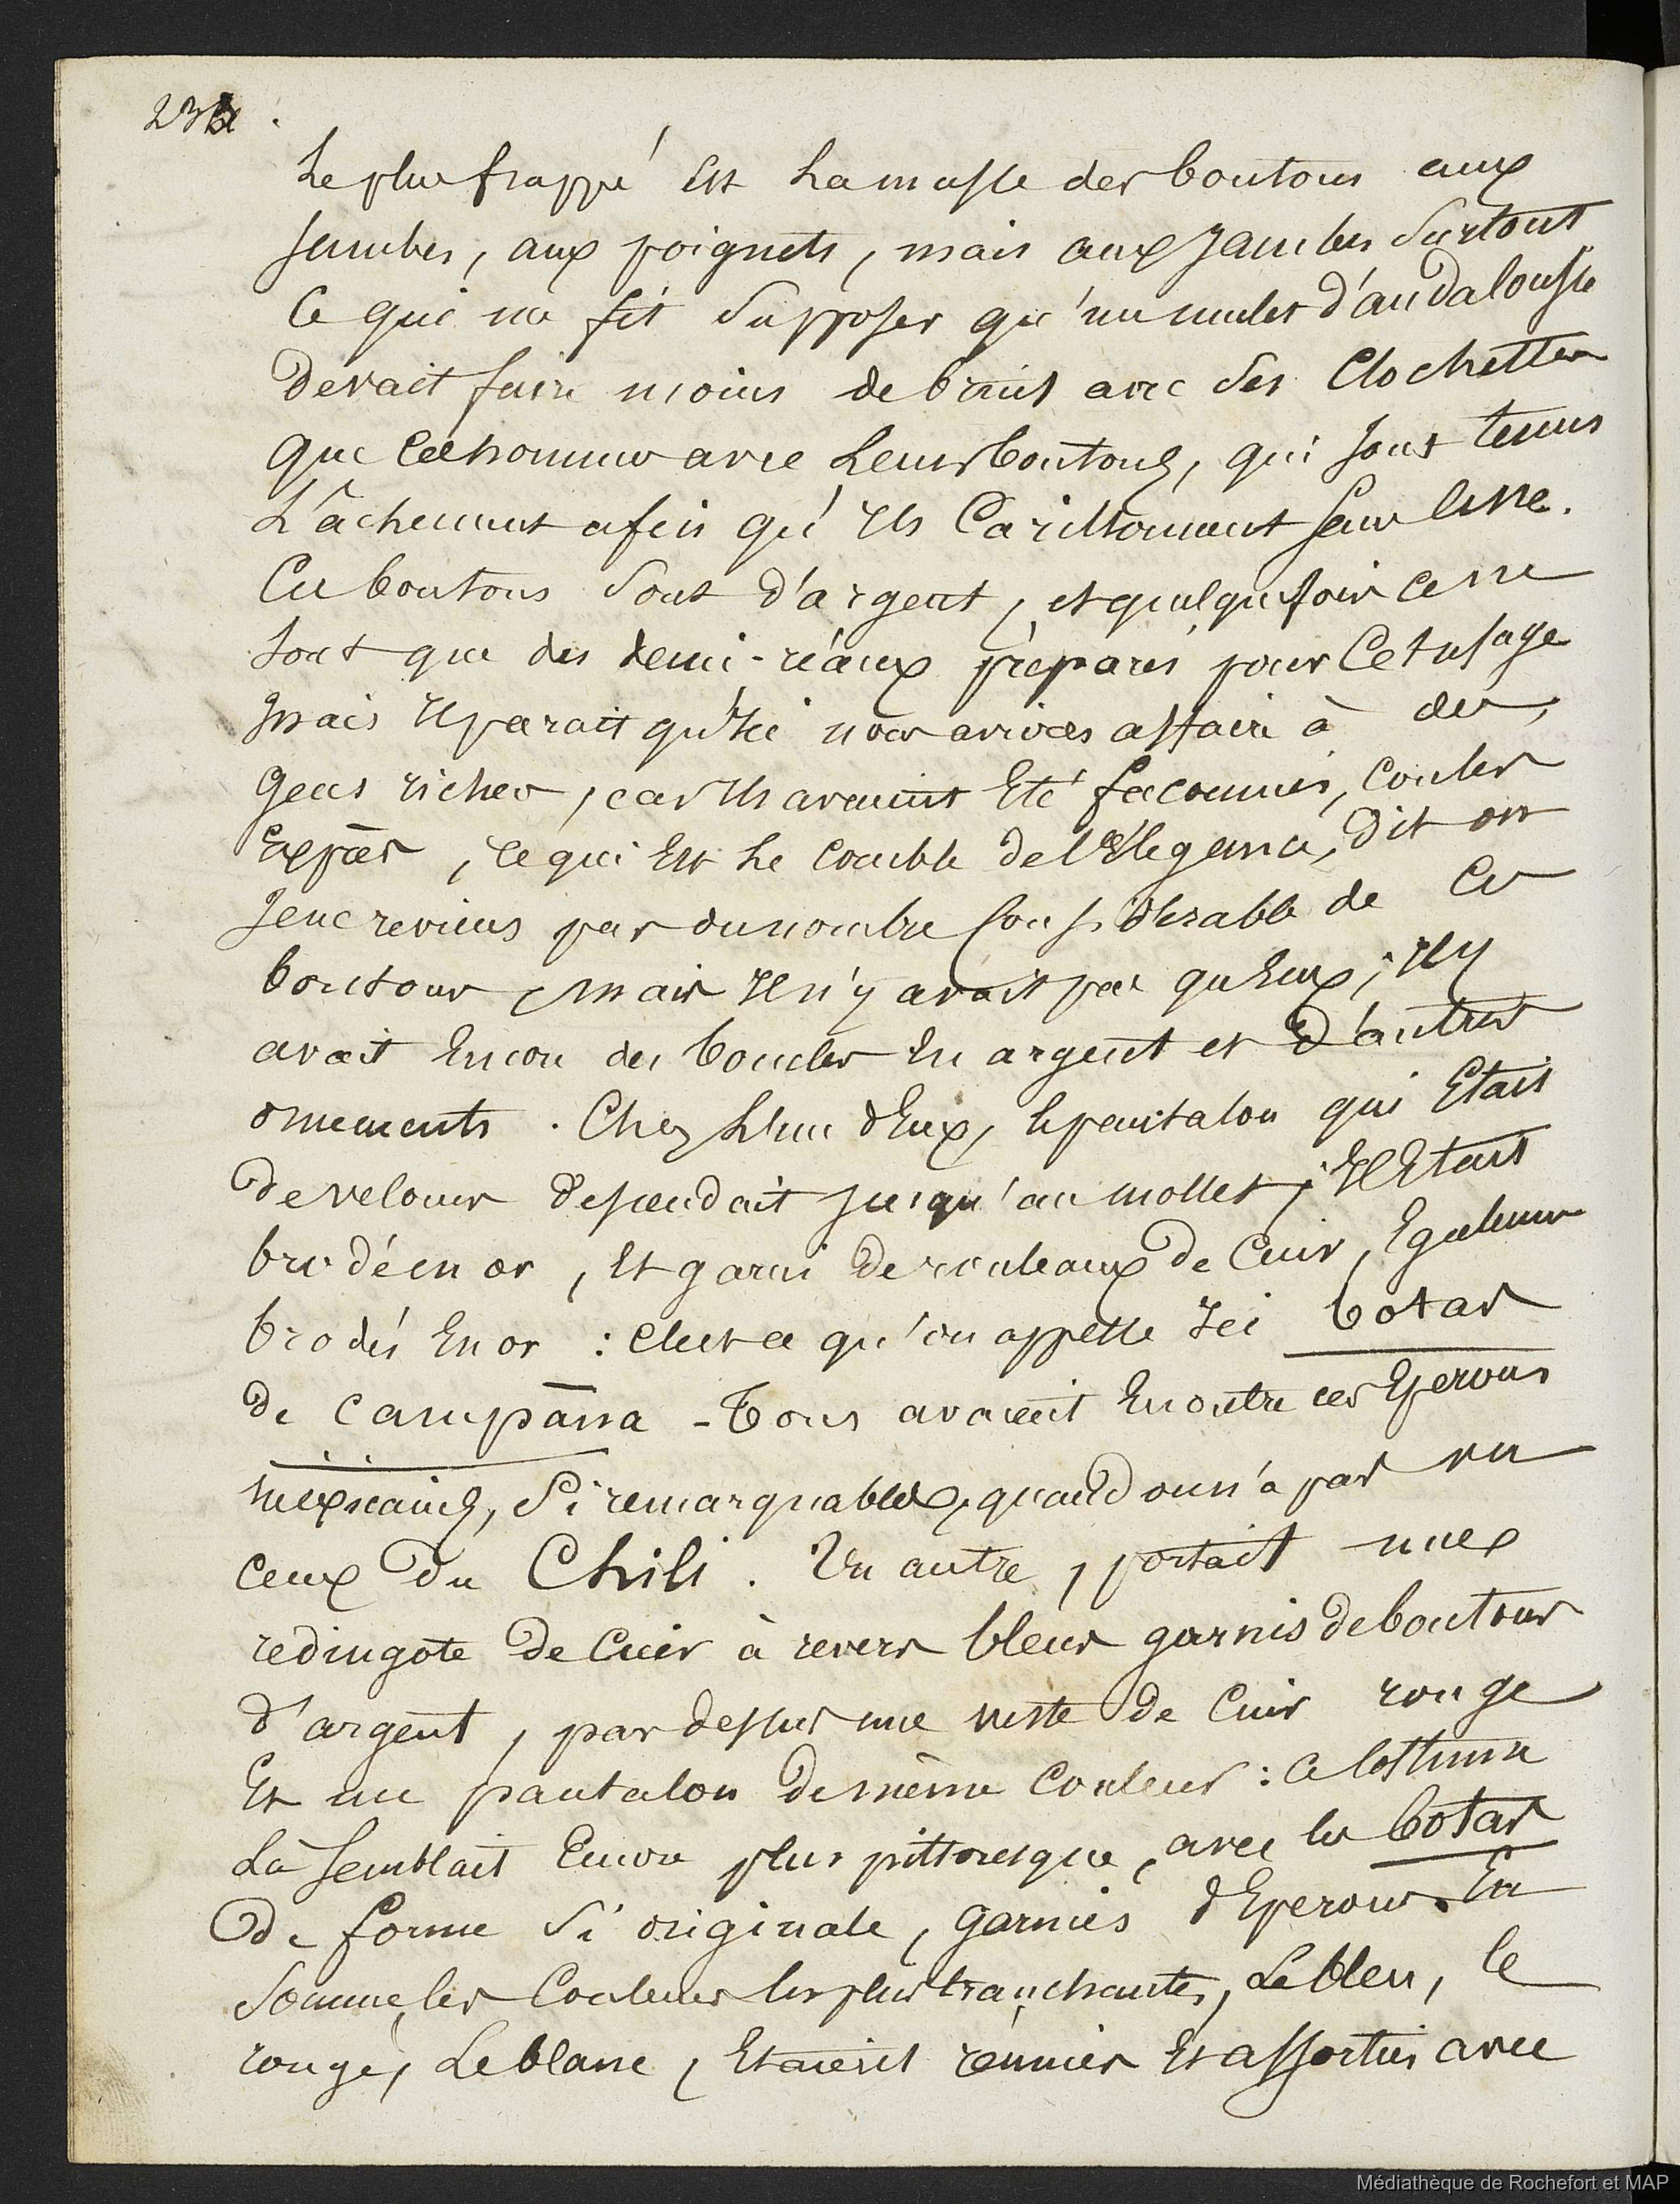 232
Le plus frappé est la masse des boutons aux
jambes, aux poignets, mais aux jambes surtout
Ce qui me fit supposer qu'un mulet d'andalousie
devait faire moins de bruit avec ses Clochettes
que Ces hommes avec leurs boutons, qui sont tenus
L'âchement afin qu'ils Carillonnent sans Cesse.
Ces boutons sont d'argent, et quelquefois Ce ne
sont que des demi-réaux préparés pour Cet usage
mais il parait qu'ici nous avions affaire à des
gens riches, car ils avaient Eté faconnés, coulés
Exprès, ce qui Est le comble de l'Elegance, dit on
Je ne reviens pas du nombre Considérable de Ces
boutons, mais il n'y avait pas qu'Eux; il y
avait Encore des boucles En argent et d'autres
ornements. Chez l'un d'Eux, le pantalon qui Etait
de velours descendait jusqu'au mollet; il Etait
brodé en or, Et garni de rouleaux de Cuir, Egalement
brodés En or : c'est ce qu'on appelle ici botas
de Campana - Tous avaient En outre ces Eperons
mexicains, si remarquables, quand on n'a pas vu
ceux du Chili. Un autre, portait une
redingote de Cuir à revers bleus garnis de boutons
d'argent, par dessus une veste de Cuir rouge
Et un pantalon de même Couleur : Ce Costume
Là semblait Encore plus pittoresque, avec les botas
de forme si originale, garnies d'Eperons. En
somme, les Couleurs les plus tranchantes, Le bleu, le
rouge, Le blanc, Etaient réunies Et assorties avec
Médiathèque de Rochefort et MAP